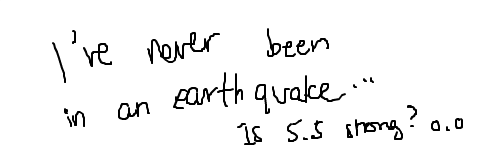 I've never been
in an earthquake...
Is 5.5 strong? o.o